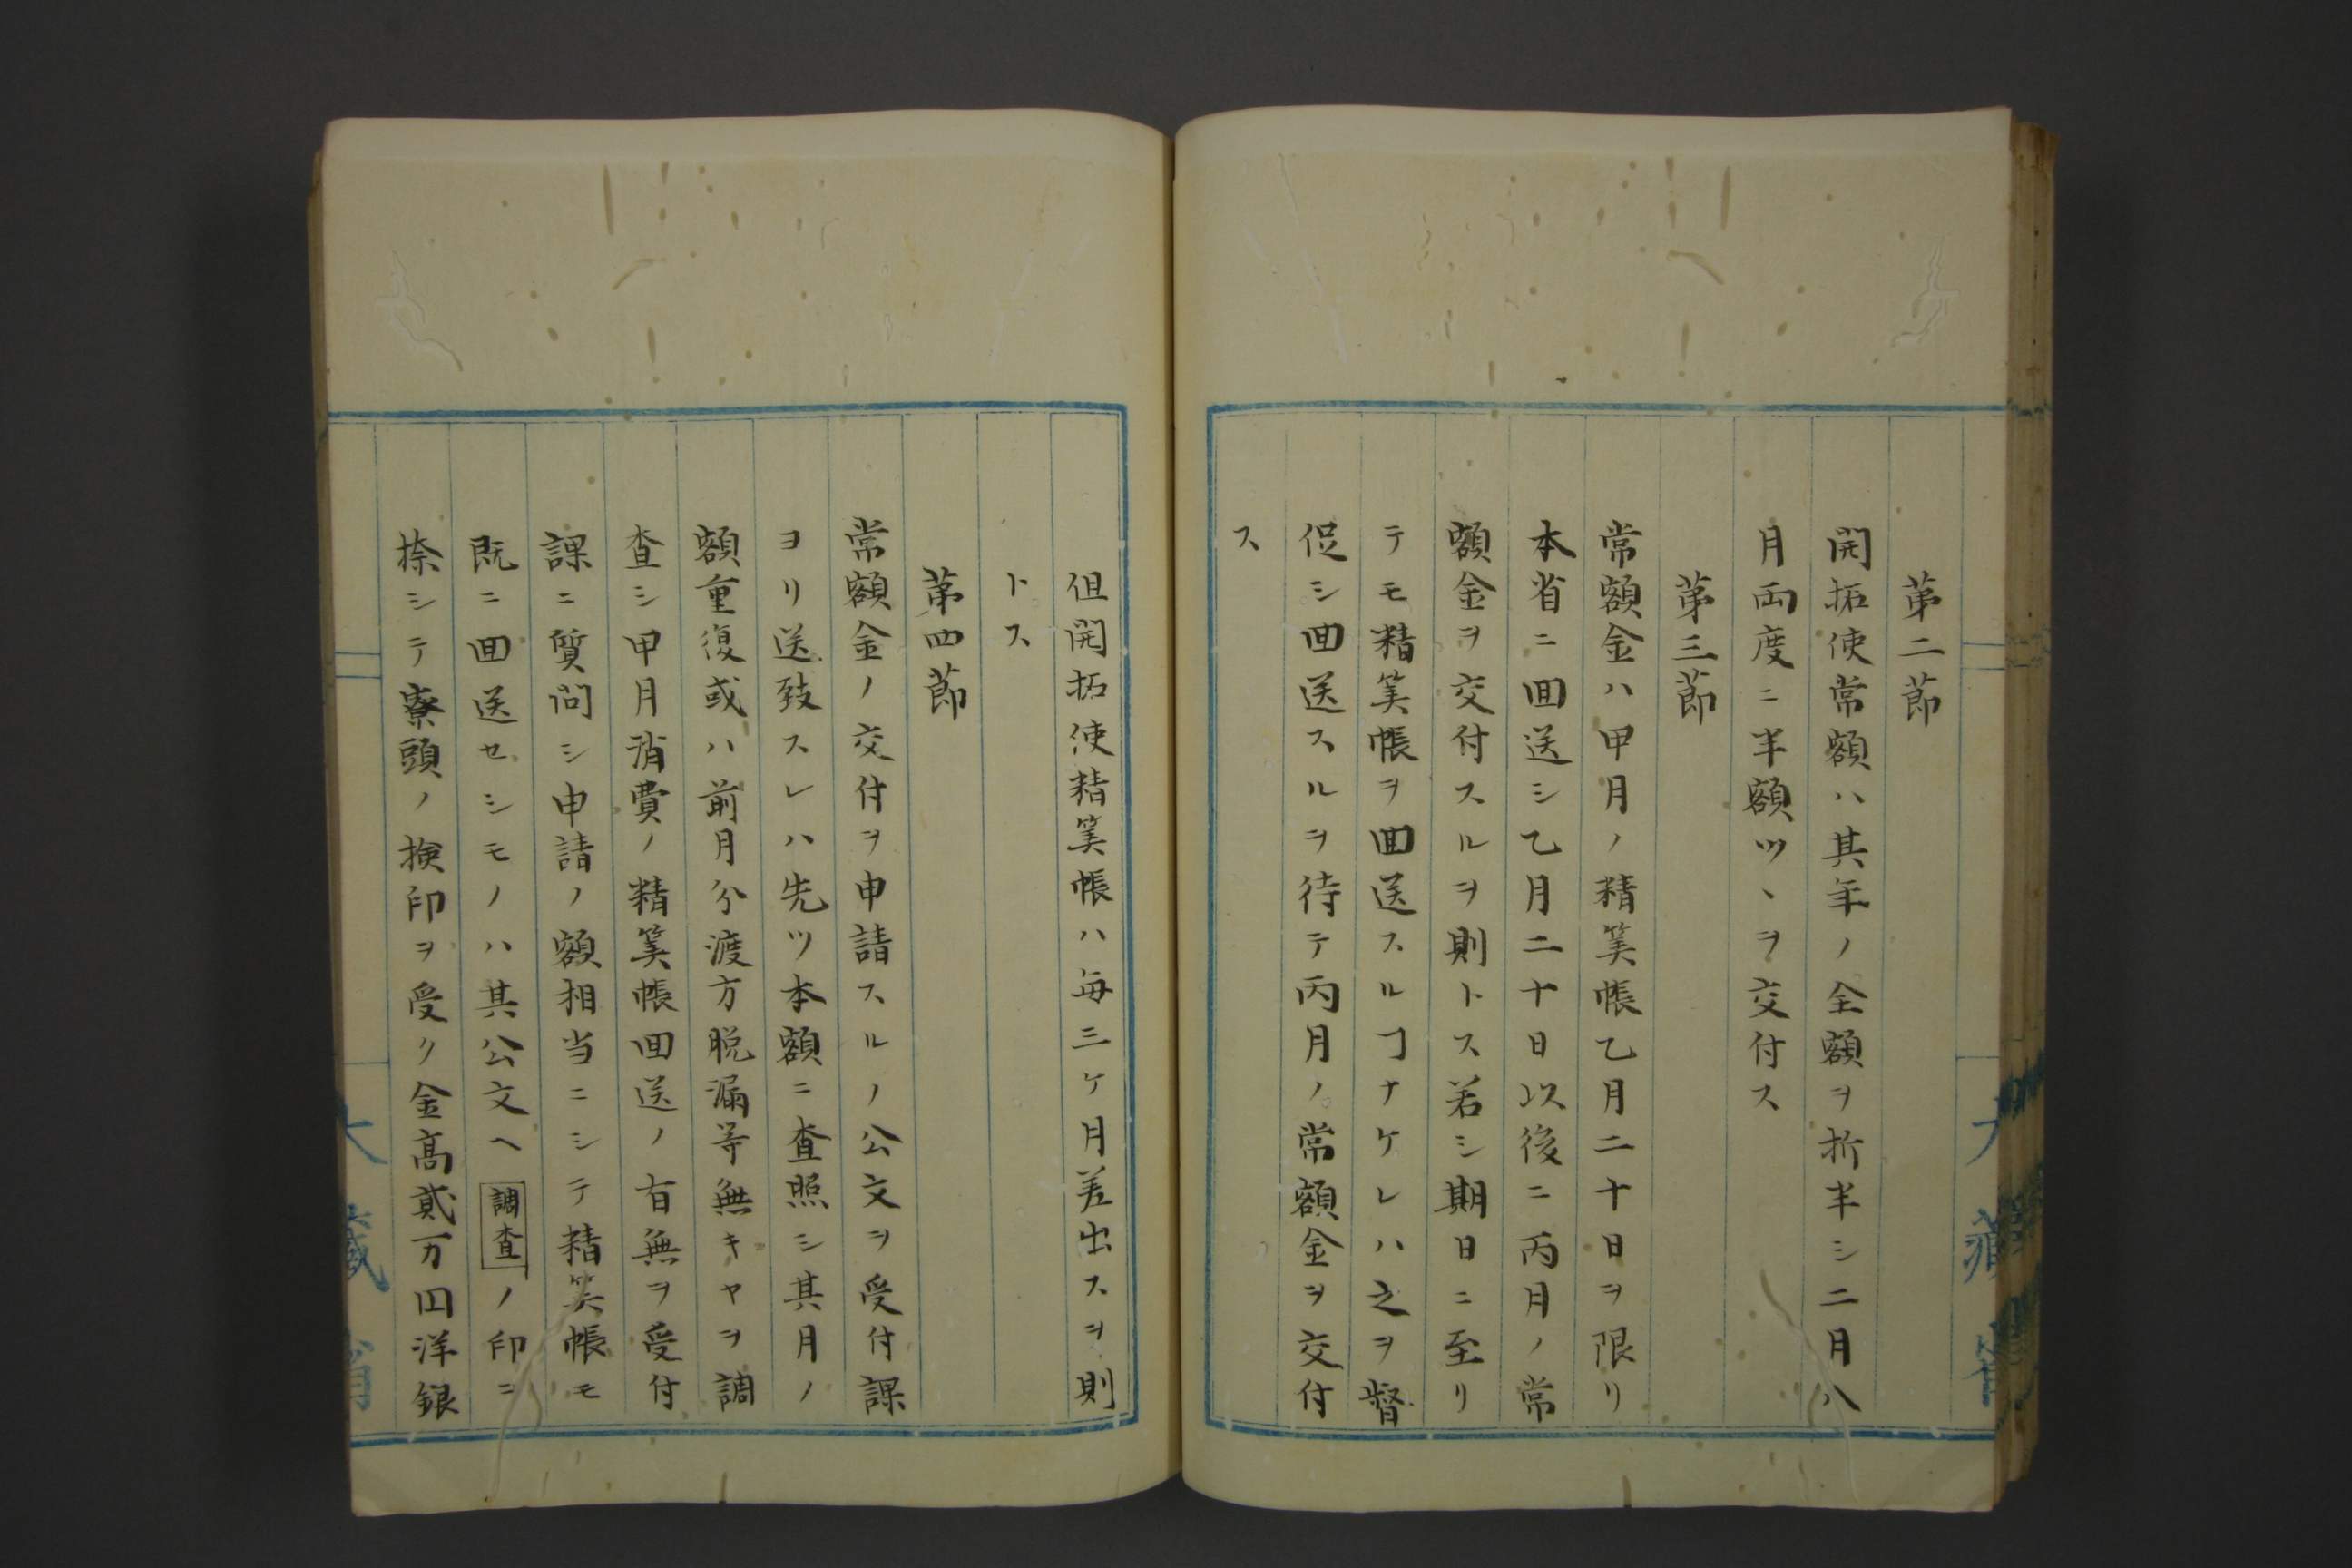 第二節
開拓使常額ハ其年ノ全額ヲ折半シ二月八
月両度ニ半額ツヽヲ交付ス
第三節
常額金ハ甲月ノ精筭帳乙月二十日ヲ限リ
本省ニ囬送シ乙月二十日以後ニ丙月ノ常
額金ヲ交付スルヲ則トス若シ期日ニ至リ
テモ精筭帳ヲ囬送スルヿナケレハ之ヲ督
促シ囬送スルヲ待テ丙月ノ常額金ヲ交付
ス
但開拓使精筭帳ハ毎三ケ月差出スヲ則
トス
第四節
常額金ノ交付ヲ申請スルノ公文ヲ受付課
ヨリ送致スレハ先ツ本額ニ査照シ其月ノ
額重復或ハ前月分渡方脱漏等無キヤヲ調
査シ甲月消費ノ精筭帳囬送ノ有無ヲ受付
課ニ質問シ申請ノ額相当ニシテ精筭帳モ
既ニ囬送セシモノハ其公文ヘ調査ノ印ニ
捺シテ寮頭ノ検印ヲ受ケ金高貳万囙洋銀
大藏省
大藏省